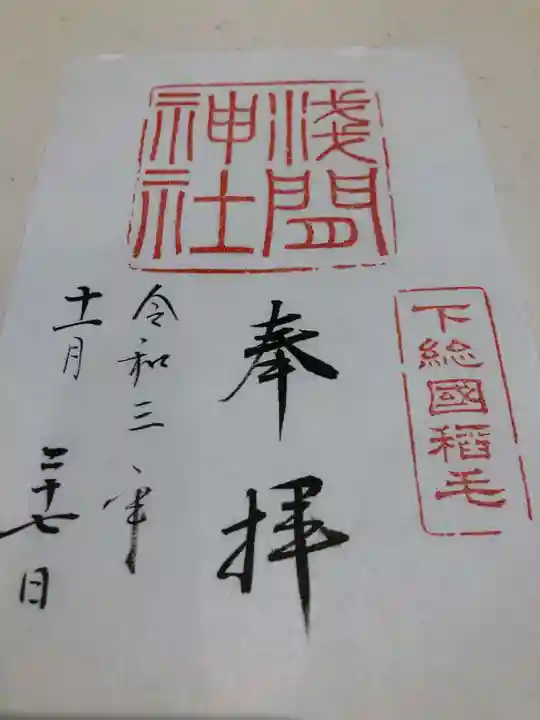 下総國稲毛
浅間
神社
奉拝
令和三年
十一月
二十七日